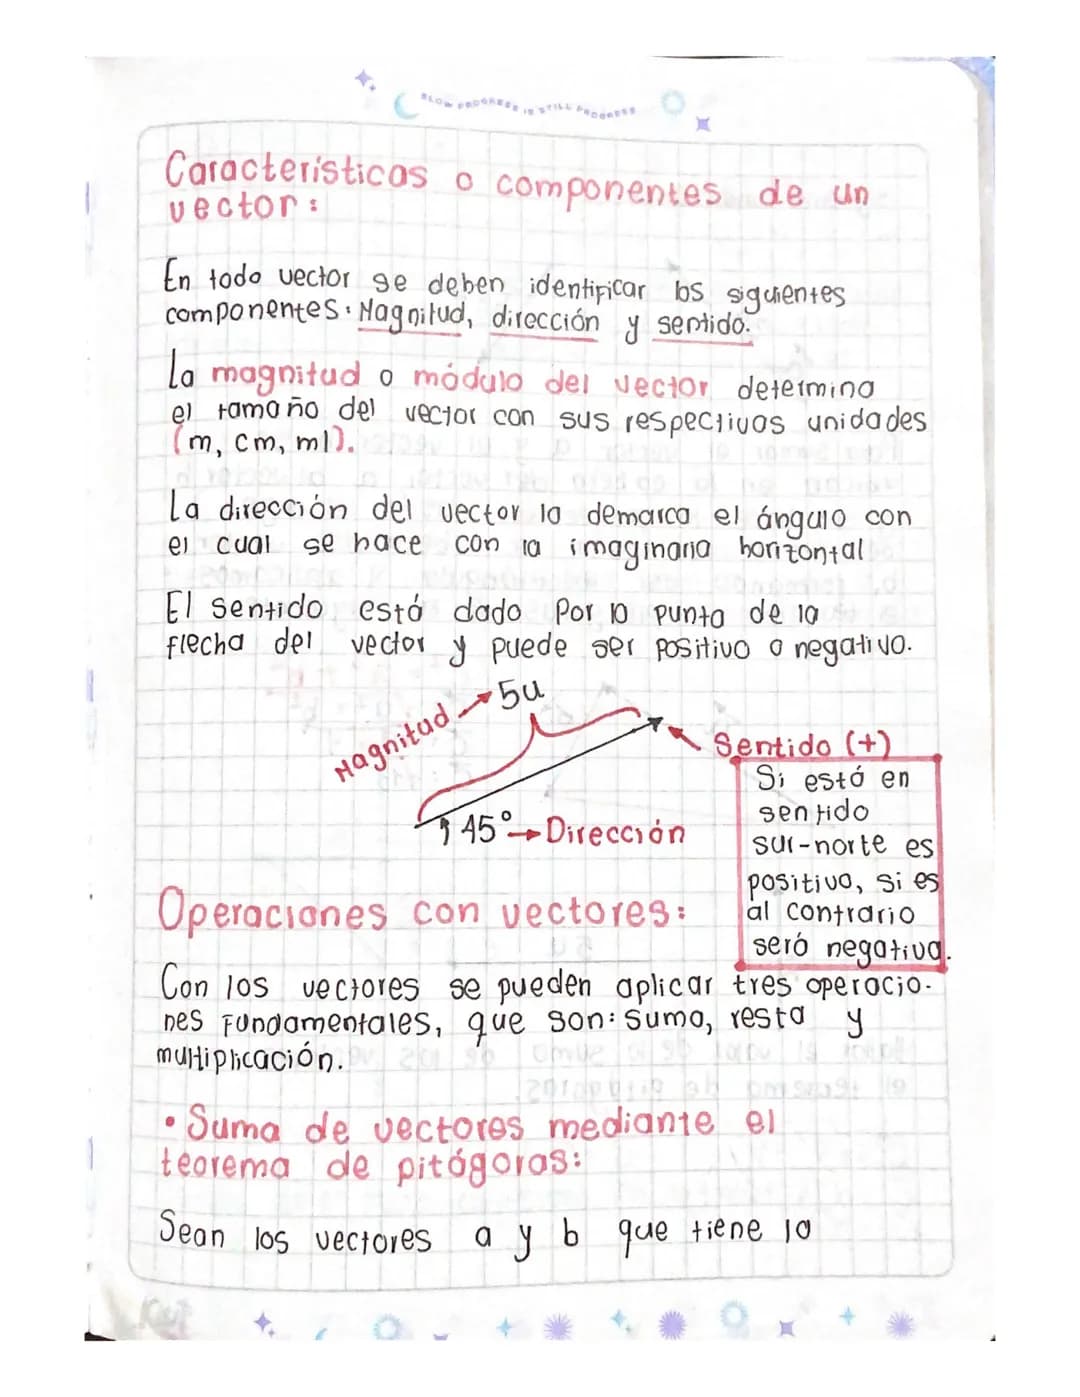 SLOW PROGRESS IS STILL PROGRESS
Características o componentes de un
vector:
En todo vector se deben identificar los siguientes
componentes: Magnitud, dirección y sentido.
La magnitud o módulo del vector determina
el tamaño del vector con sus respectivas unidades
(m, cm, ml).
La dirección del vector la demarca el ángulo con
el cual se hace con la imaginaria horizontal
El sentido está dado Por la punta de la
flecha del vector y puede ser positivo o negativo.
Magnitud → 5u
Sentido (+)
Si está en
sentido
sur-norte es
positivo, si es
al contrario
será negativa.
45° → Dirección
Operaciones con vectores:
Con los vectores se pueden aplicar tres operacio-
nes Fundamentales, que son: Suma, resta y
multiplicación.
• Suma de vectores mediante el
teorema de pitágoras:
Sean los vectores a y b que tiene la